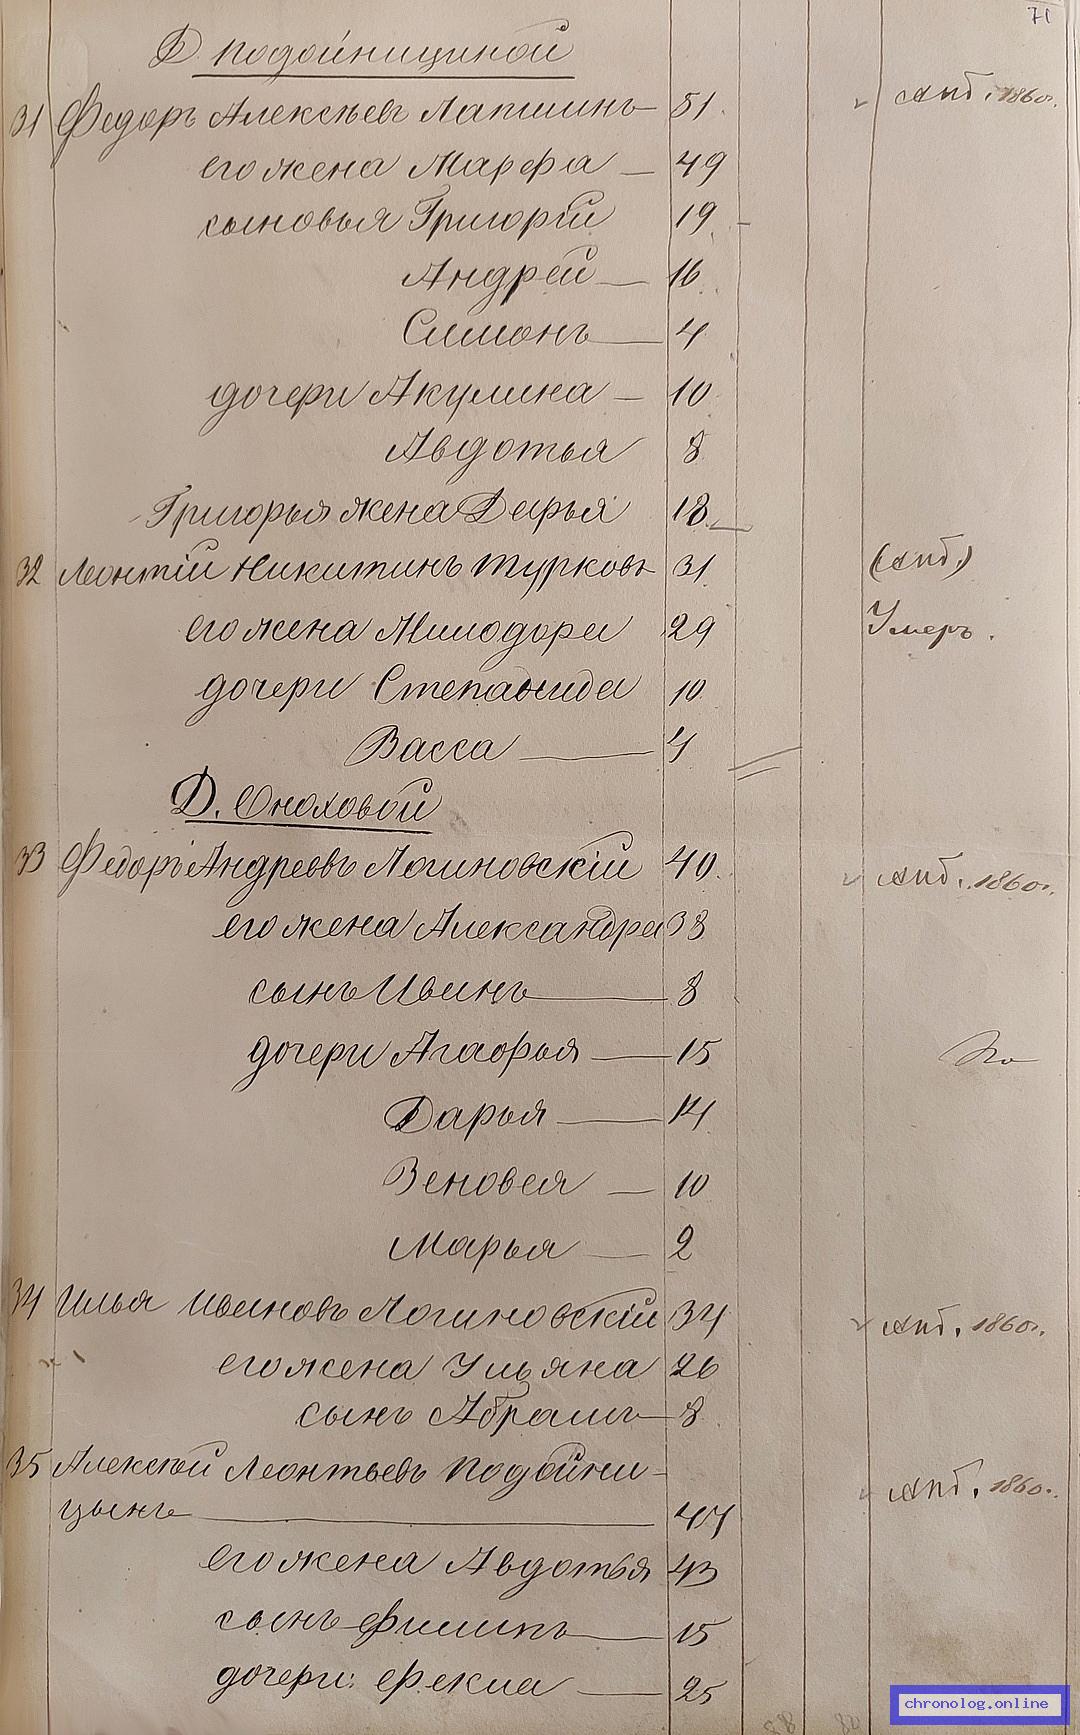 71
Д. Подойницыной
31 Федоръ Алексѣевъ Лапшинъ 51 Апб. 1860г.
его жена Марфа 49
сыновья Григорій 19
Андрей 16
Симонъ 4
дочери Акулина 10
Авдотья 8
Григорья жена Дарья 18
32 Леонтій Никитинъ Турковъ 31 (Апб.)
его жена Милодора 29 Умеръ.
дочери Степанида 10
Васса 4
Д. Оноховой
33 Федоръ Андреевъ Логиновскій 40 Апб. 1860г.
его жена Александра 38
сынъ Иванъ 8
дочери Агафья 15
Дарья 14
Зеновея 10
Марья 2
34 Илья Ивановъ Логиновскій 34 Апб. 1860г.
его жена Ульяна 26
сынъ Абрамъ 8
35 Алексѣй Леонтьевъ Подойни-
цынъ 47 Апб. 1860г.
его жена Авдотья 43
сынъ Филипъ 15
дочери: Фекла 25
chronolog.online